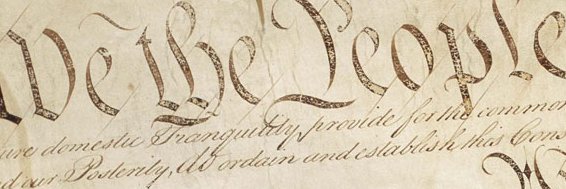 We the People
ure domestic Tranquility, provide for the common
d our Posterity, do ordain and establish this Cons